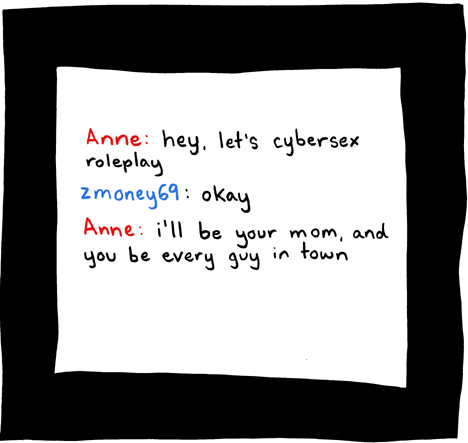 Anne: hey, let's cybersex
roleplay
zmoney69: okay
Anne: i'll be your mom, and
you be every guy in town